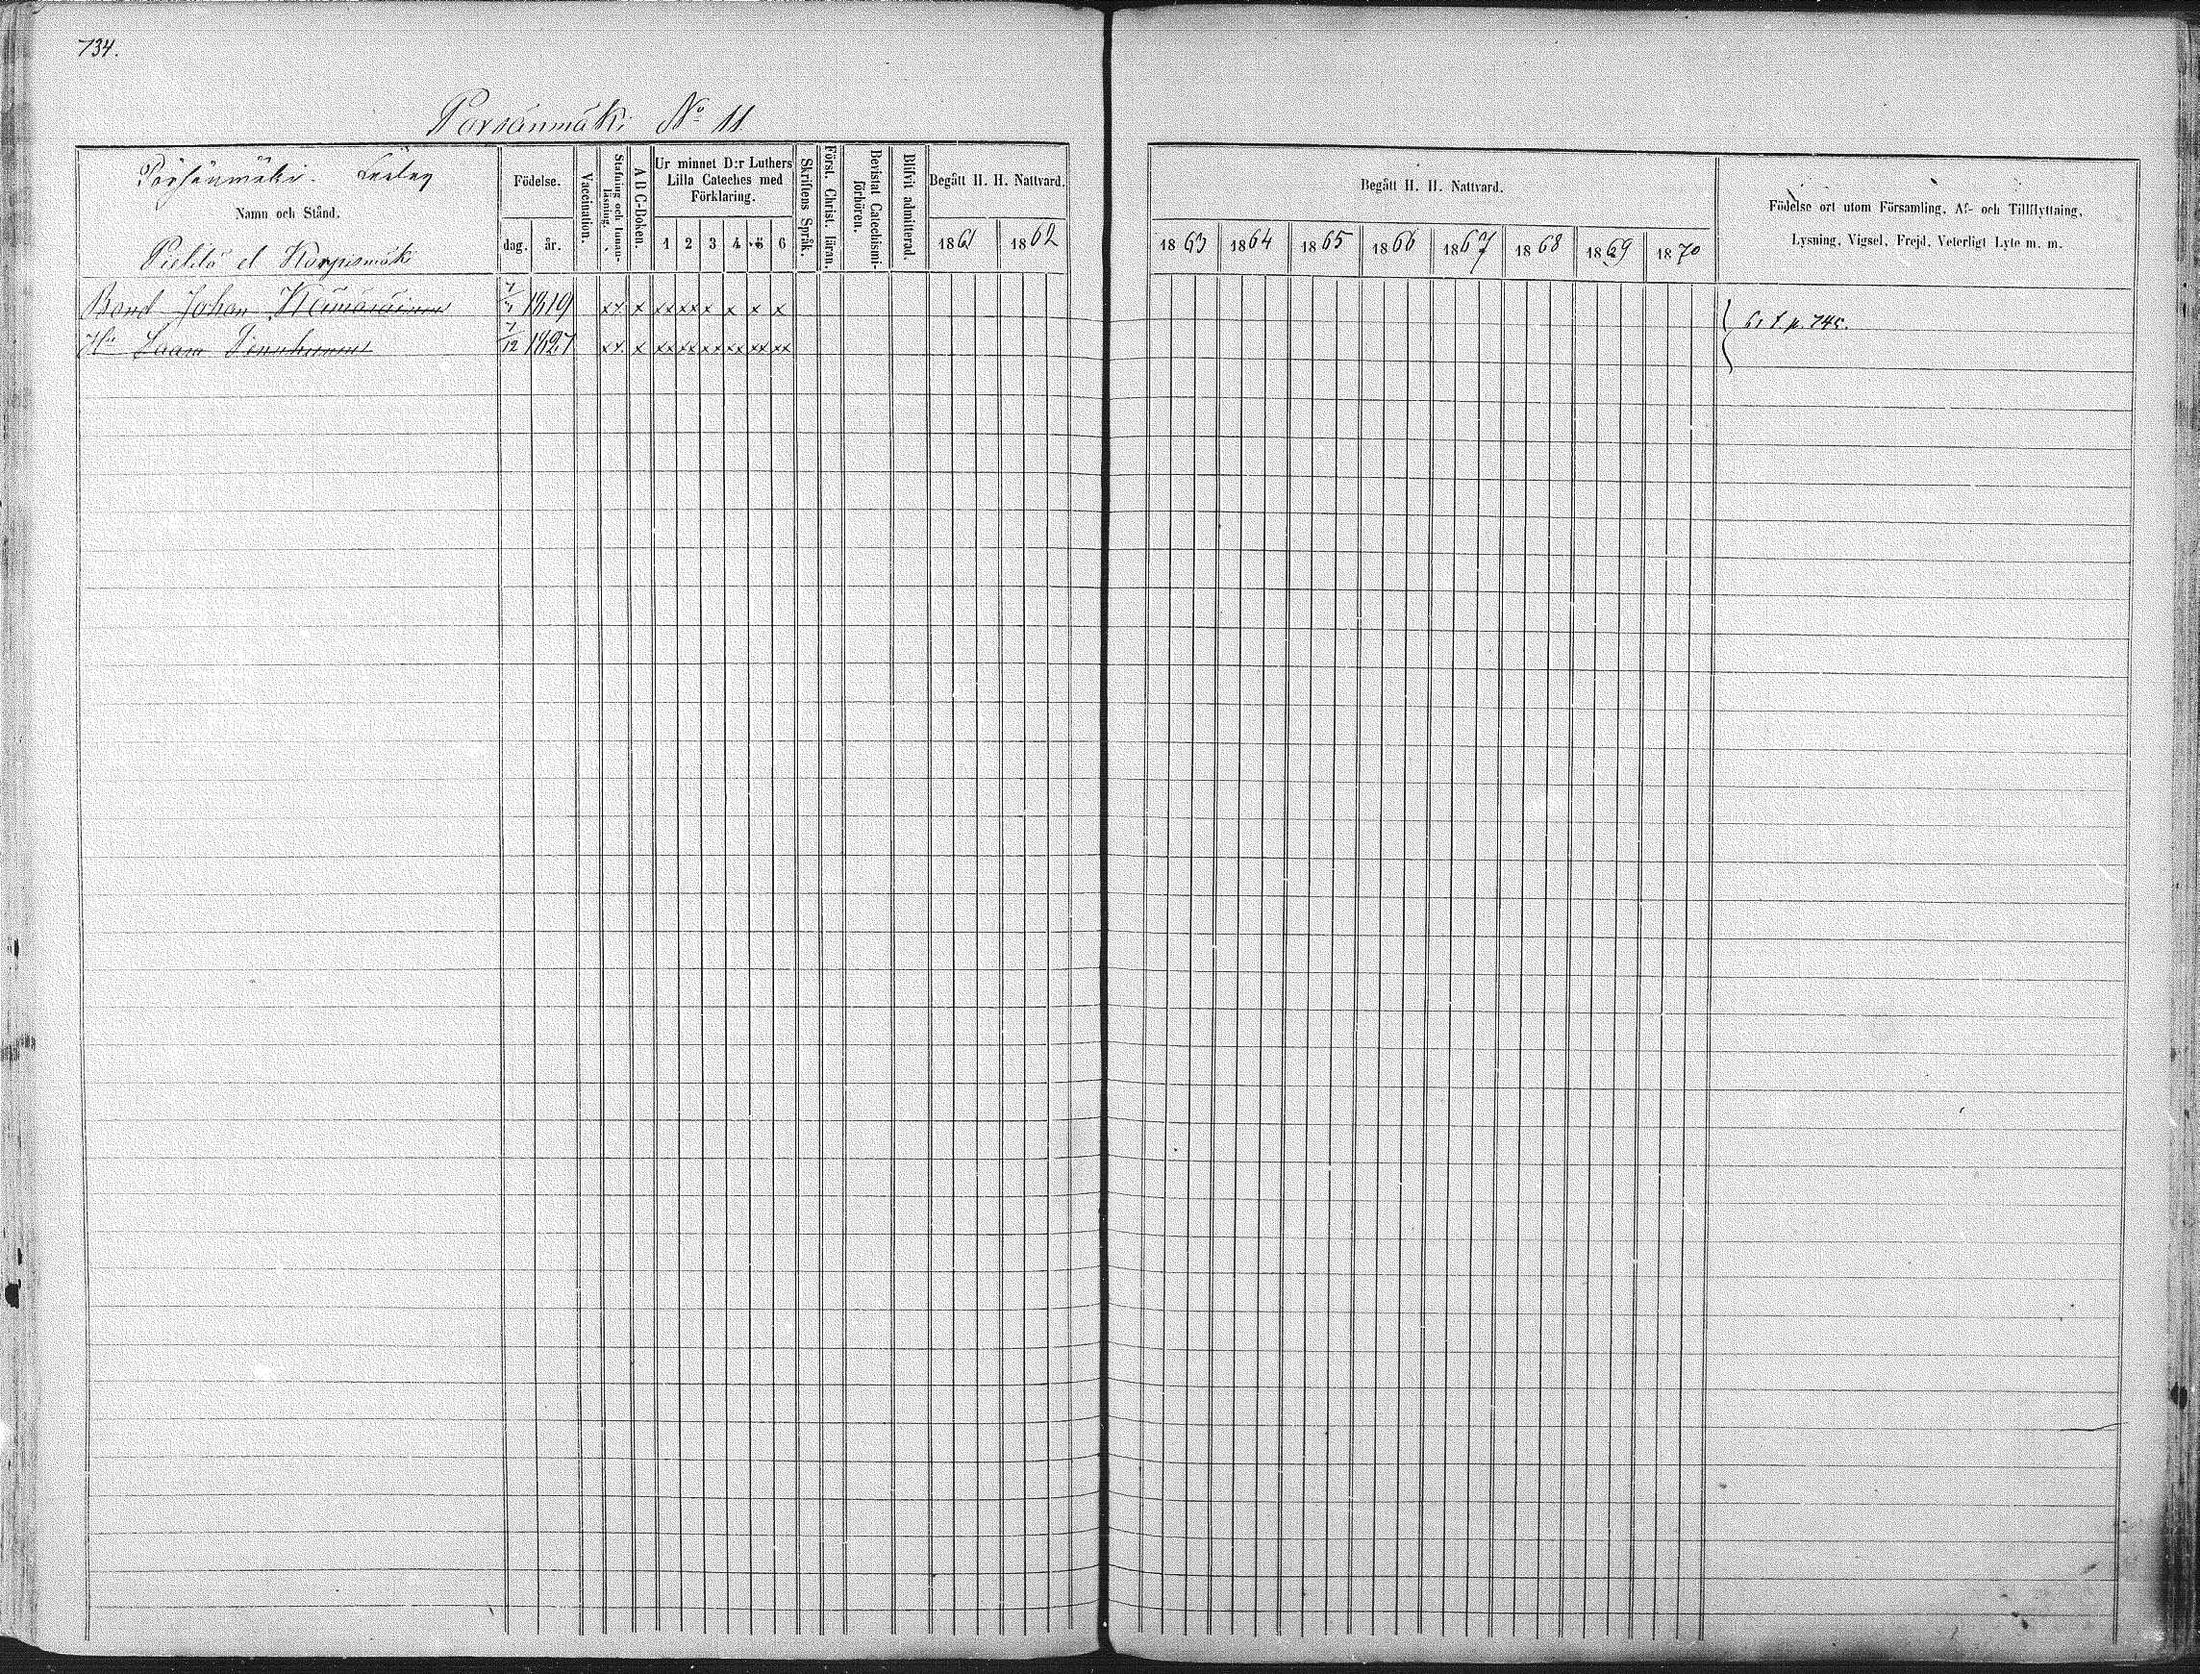 734.
Porsänmäki No 11
Pörsänmäki
Namn och Stånd.
Pielilä el Korpismäki
Födelse.
dag. år.
Vaccination.
Stafning och Innan-läsning.
A B C-Boken.
Ur minnet D:r Luthers
Lilla Cateches med
Förklaring.
1 2 3 4 5 6
Skriftens Språk.
Först. Christ. läran.
Bevistat Catechismi-förhören.
Blifvit admitterad.
Begått H. H. Nattvard.
1861 1862
Begått H. H. Nattvard.
1863 1864 1865 1866 1867 1868 1869 1870
Födelse ort utom Församling, Af- och Tillflyttning,
Lysning, Vigsel, Frejd, Veterligt Lyte m. m.
Bond Johan Kämäräinen 1819 xx x xx xx x x x x
Hu 7/12 1827 xx x xx xx xx xx xx xx
p. 745.